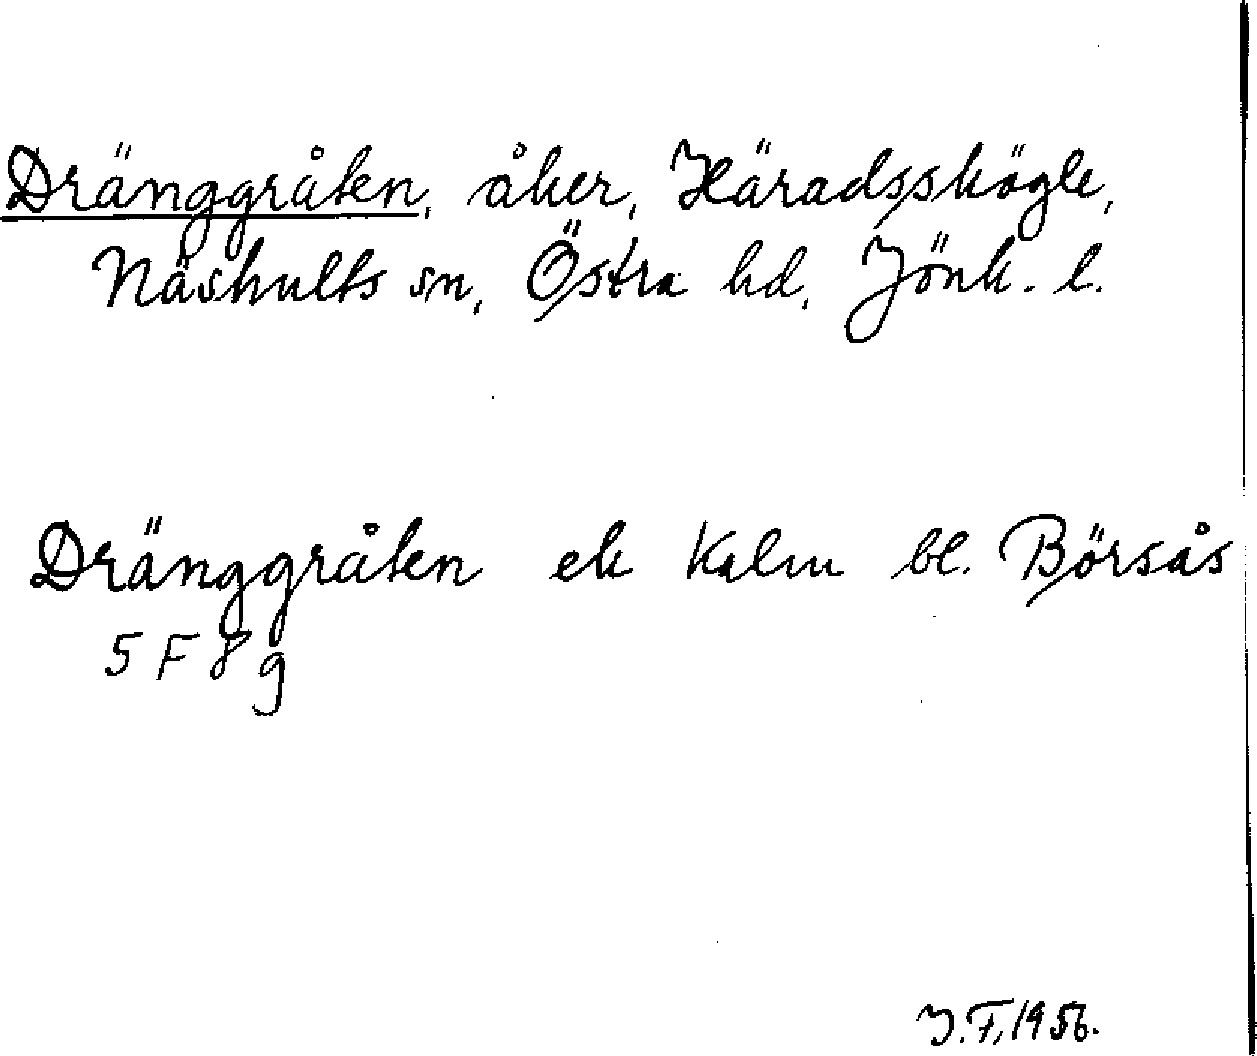 Dränggråten, åker, Häradsskögle,
Näshults sn, Östra hd, Jönk. l.
Dränggråten ek Kalm bl. Börsås
5 F 8 g
J.F, 1956.